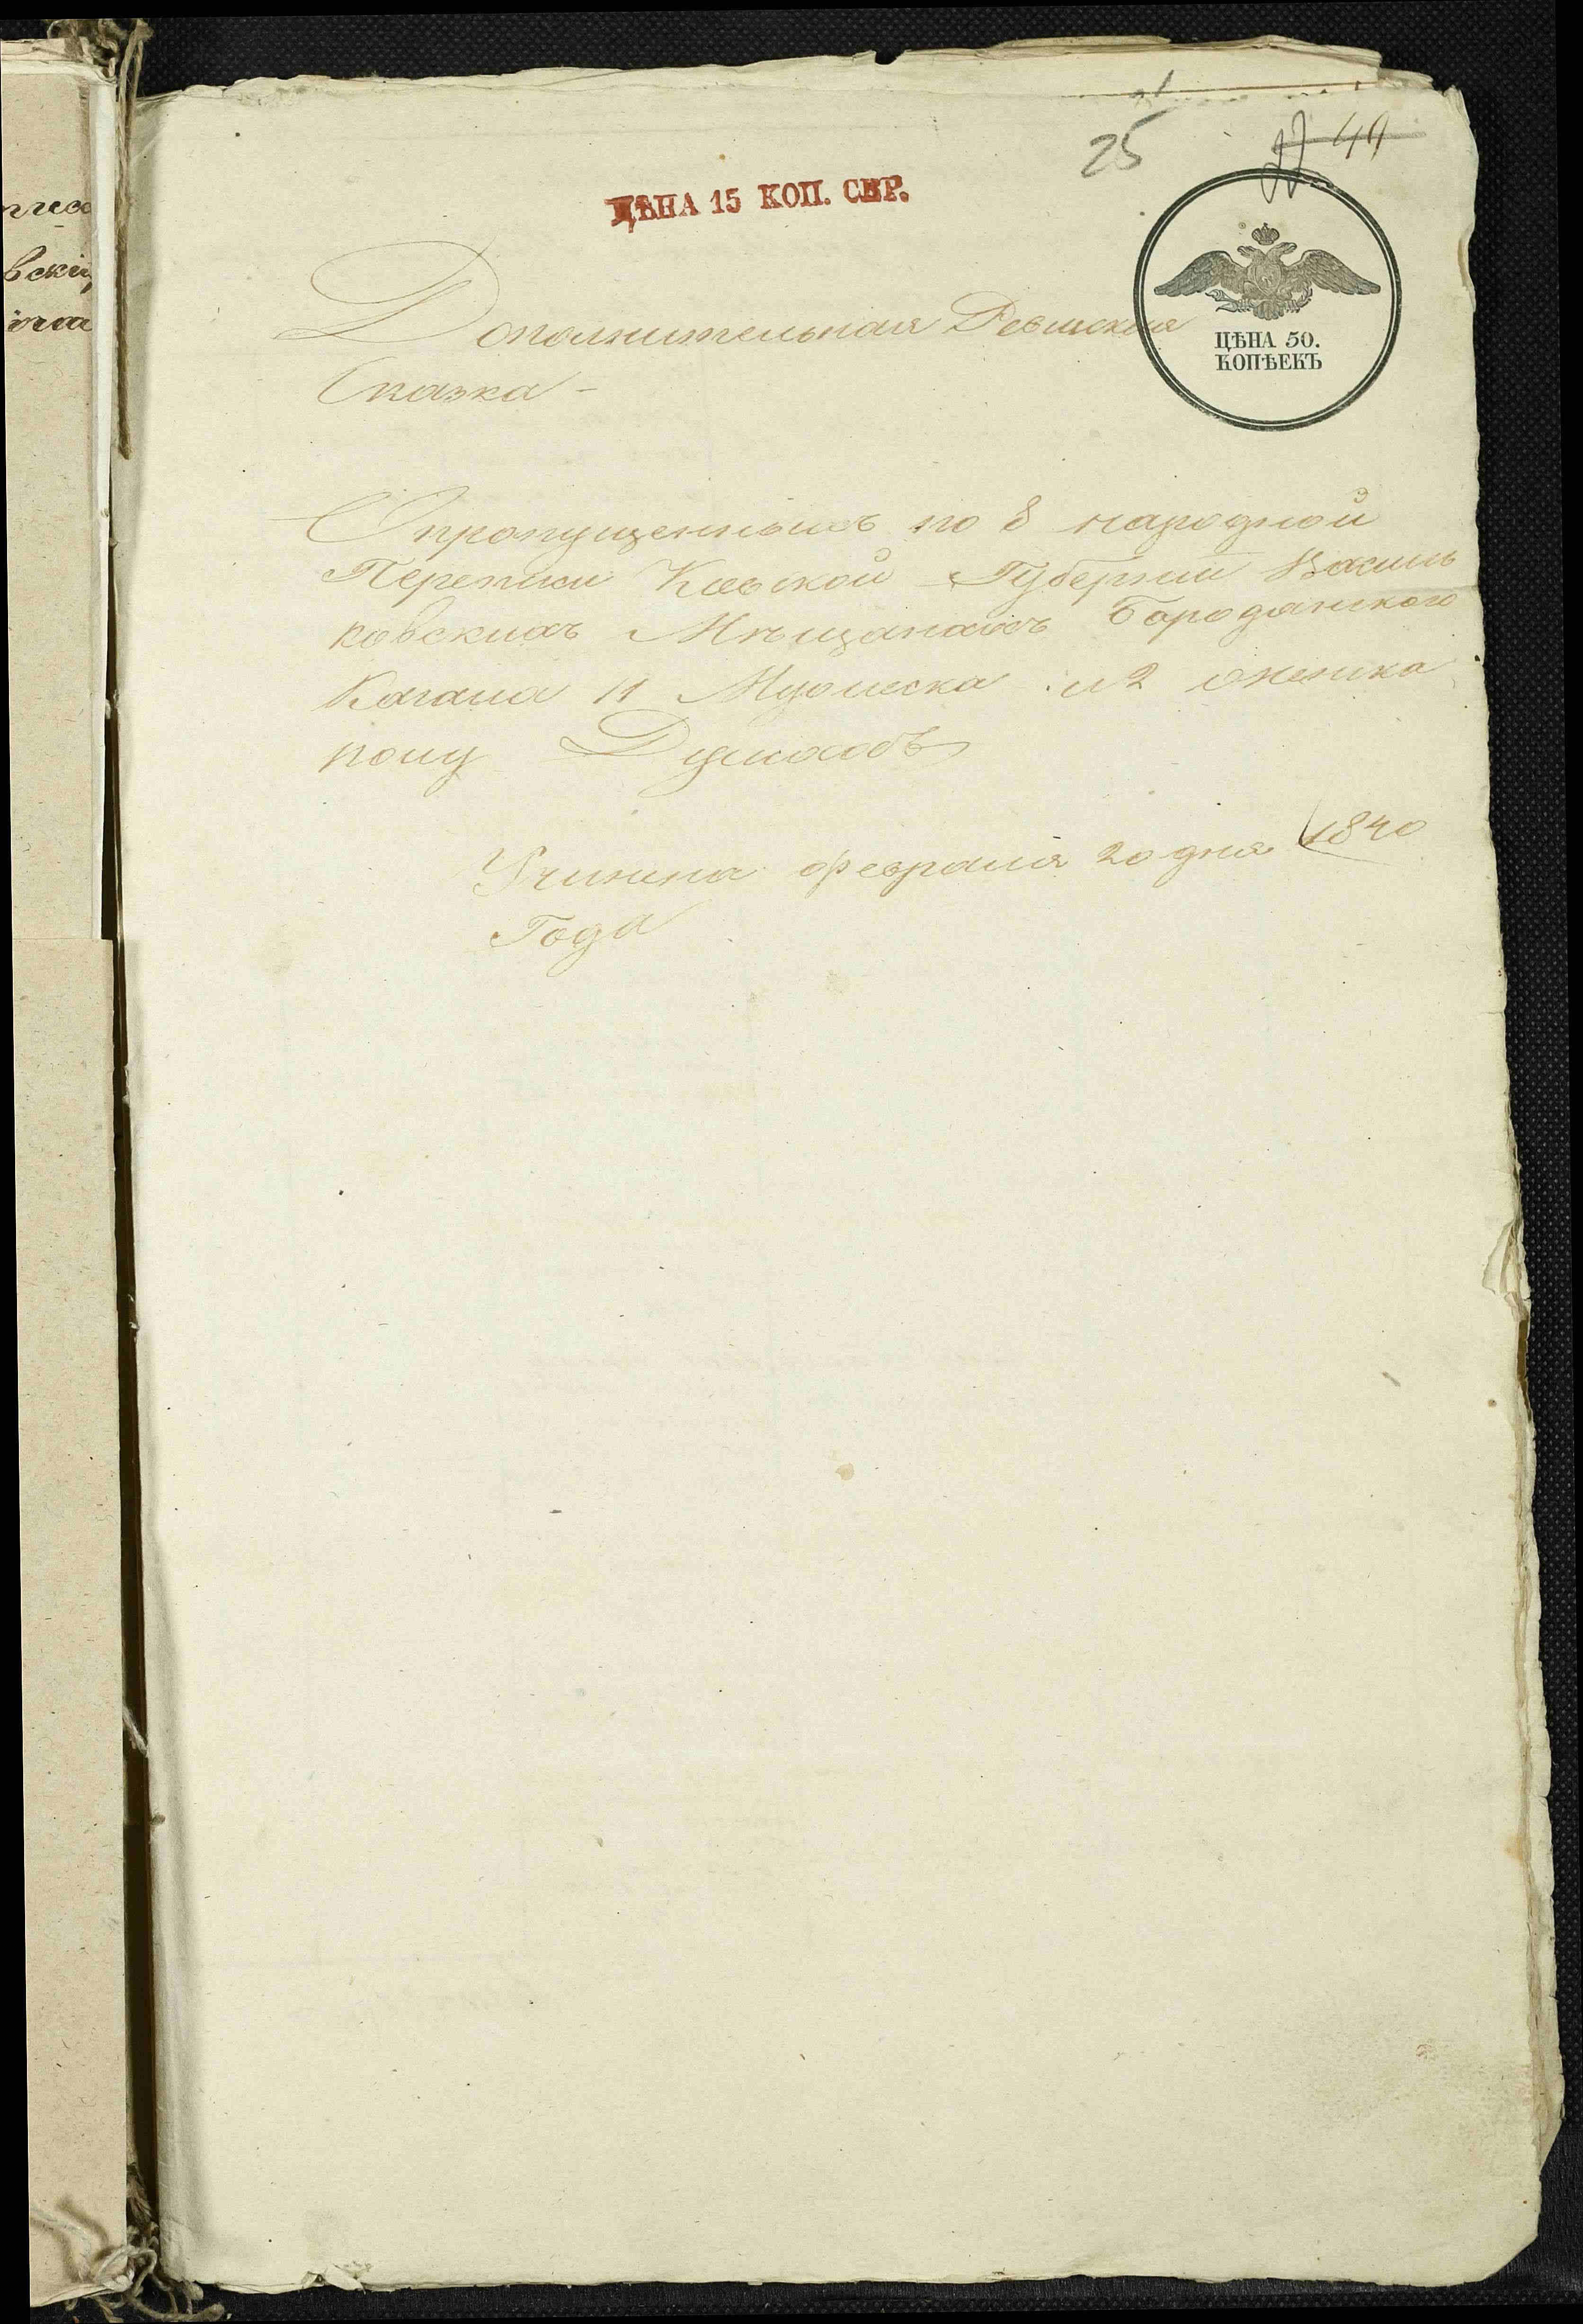 25
44
ЦѢНА 15 КОП. СЕР.
ЦѢНА 50.
КОПѢЕКЪ
Дополнительная Ревизская
Сказка
О пропущенныхъ по 8 народной
Переписи Киевской Губернии Василь
ковскихъ Мѣщанахъ Бородянского
Кагала 11 Мужеска и 2 женска
полу Душахъ
Учинена февраля 20 дня 1840
Года